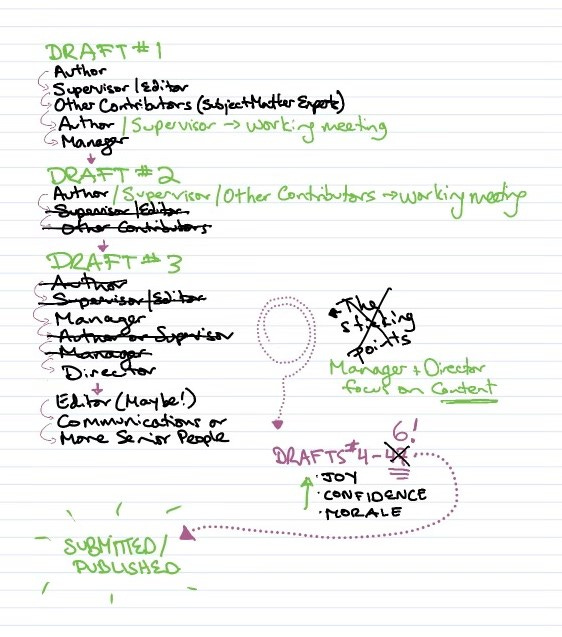 DRAFT #1
Author
Supervisor/Editor
Other Contributors (Subject Matter Experts)
Author/Supervisor → working meeting
Manager
DRAFT #2
Author/Supervisor/Other Contributors → working meeting
Supervisor/Editor
Other Contributors
DRAFT #3
Author
Supervisor/Editor
Manager
Author or Supervisor
Manager
Director
Editor (Maybe!)
Communications or
More Senior People
The
sticking
points
Manager + Director
focus on Content
6!
DRAFTS #4-
· JOY
· CONFIDENCE
· MORALE
SUBMITTED/
PUBLISHED